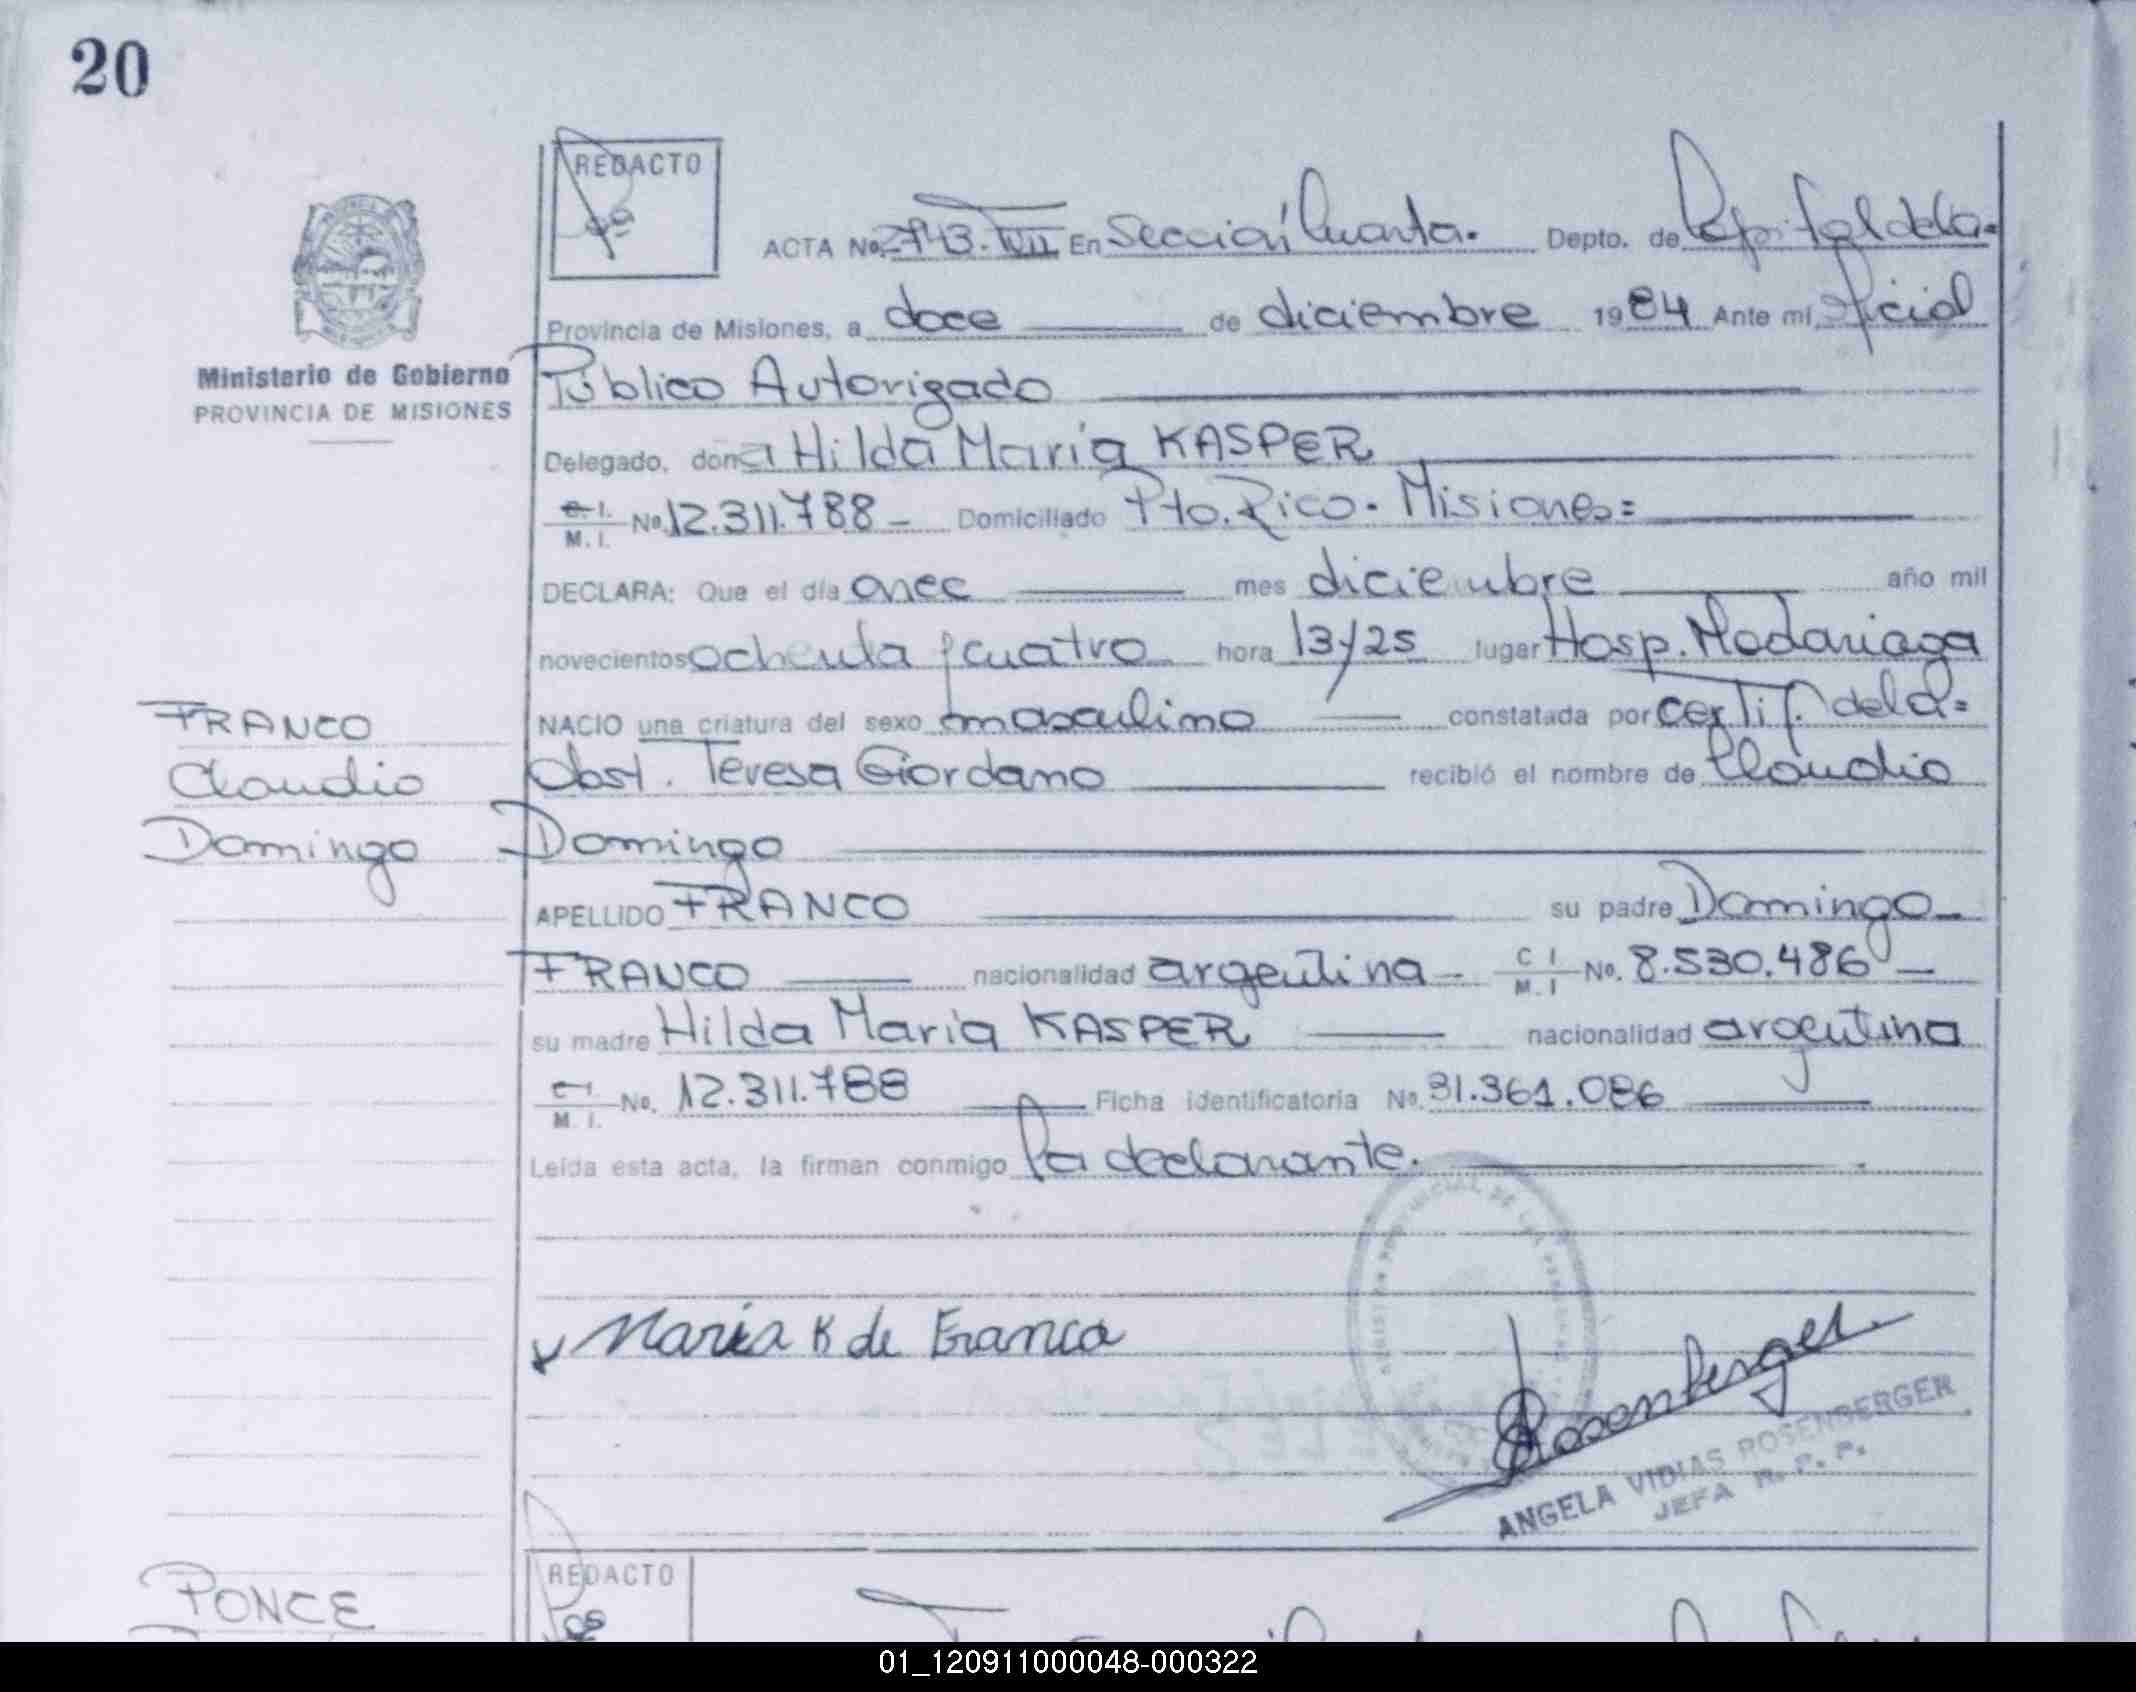 20
REDACTO
ACTA No. 2743. TVII En Sección Cuarta. Depto. de Capital de la=
Provincia de Misiones, a doce de diciembre 1984 Ante mi, Oficial
Ministerio de Gobierno
PROVINCIA DE MISIONES
Público Autorizado
Delegado, dona Hilda Maria KASPER
C. I. / M. I. No. 12.311.788 - Domiciliado Pto. Rico. Misiones=
DECLARA: Que el día once mes diciembre año mil
novecientos ochenta y cuatro hora 13/25 lugar Hosp. Madariaga
NACIO una criatura del sexo masculino constatada por certif. de la=
Obst. Teresa Giordano recibió el nombre de Claudio
Domingo
FRANCO
Claudio
Domingo
APELLIDO FRANCO su padre Domingo
FRANCO nacionalidad argentina - C I / M. I No. 8.530.486 -
su madre Hilda Maria KASPER nacionalidad argentina
C I. / M. I. No. 12.311.788 Ficha identificatoria No. 31.361.086
Leída esta acta, la firman conmigo la declarante.
Maria K de Franco
Rosenberger
ANGELA VIDIAS ROSENBERGER
JEFA R. P. P.
PONCE
REDACTO
01_120911000048-000322